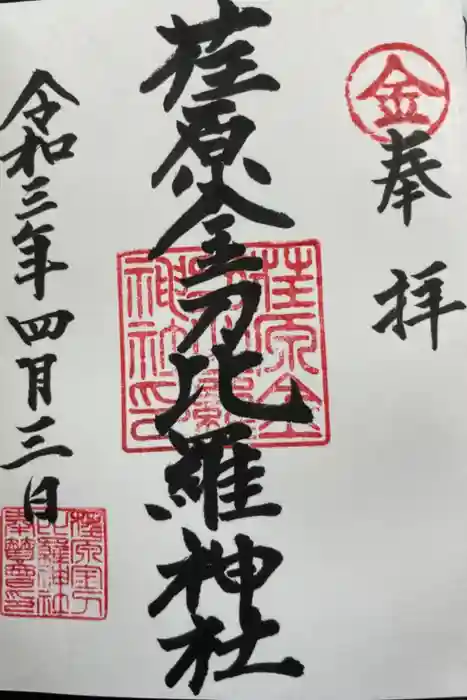 金
奉拝
荏原金刀比羅神社
荏原金
刀比羅
神社印
令和三年四月三日
荏原金刀
比羅神社
奉賛會印